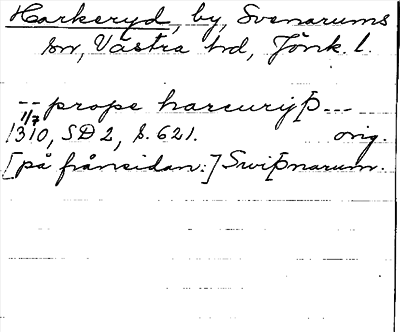 Harkeryd, by, Svenarums
sn, Västra hd, Jönk. l.
-- prope harcuryþ ---
1/7
1310, SD 2, s. 621. orig.
[på frånsidan:] Swiþnarum.